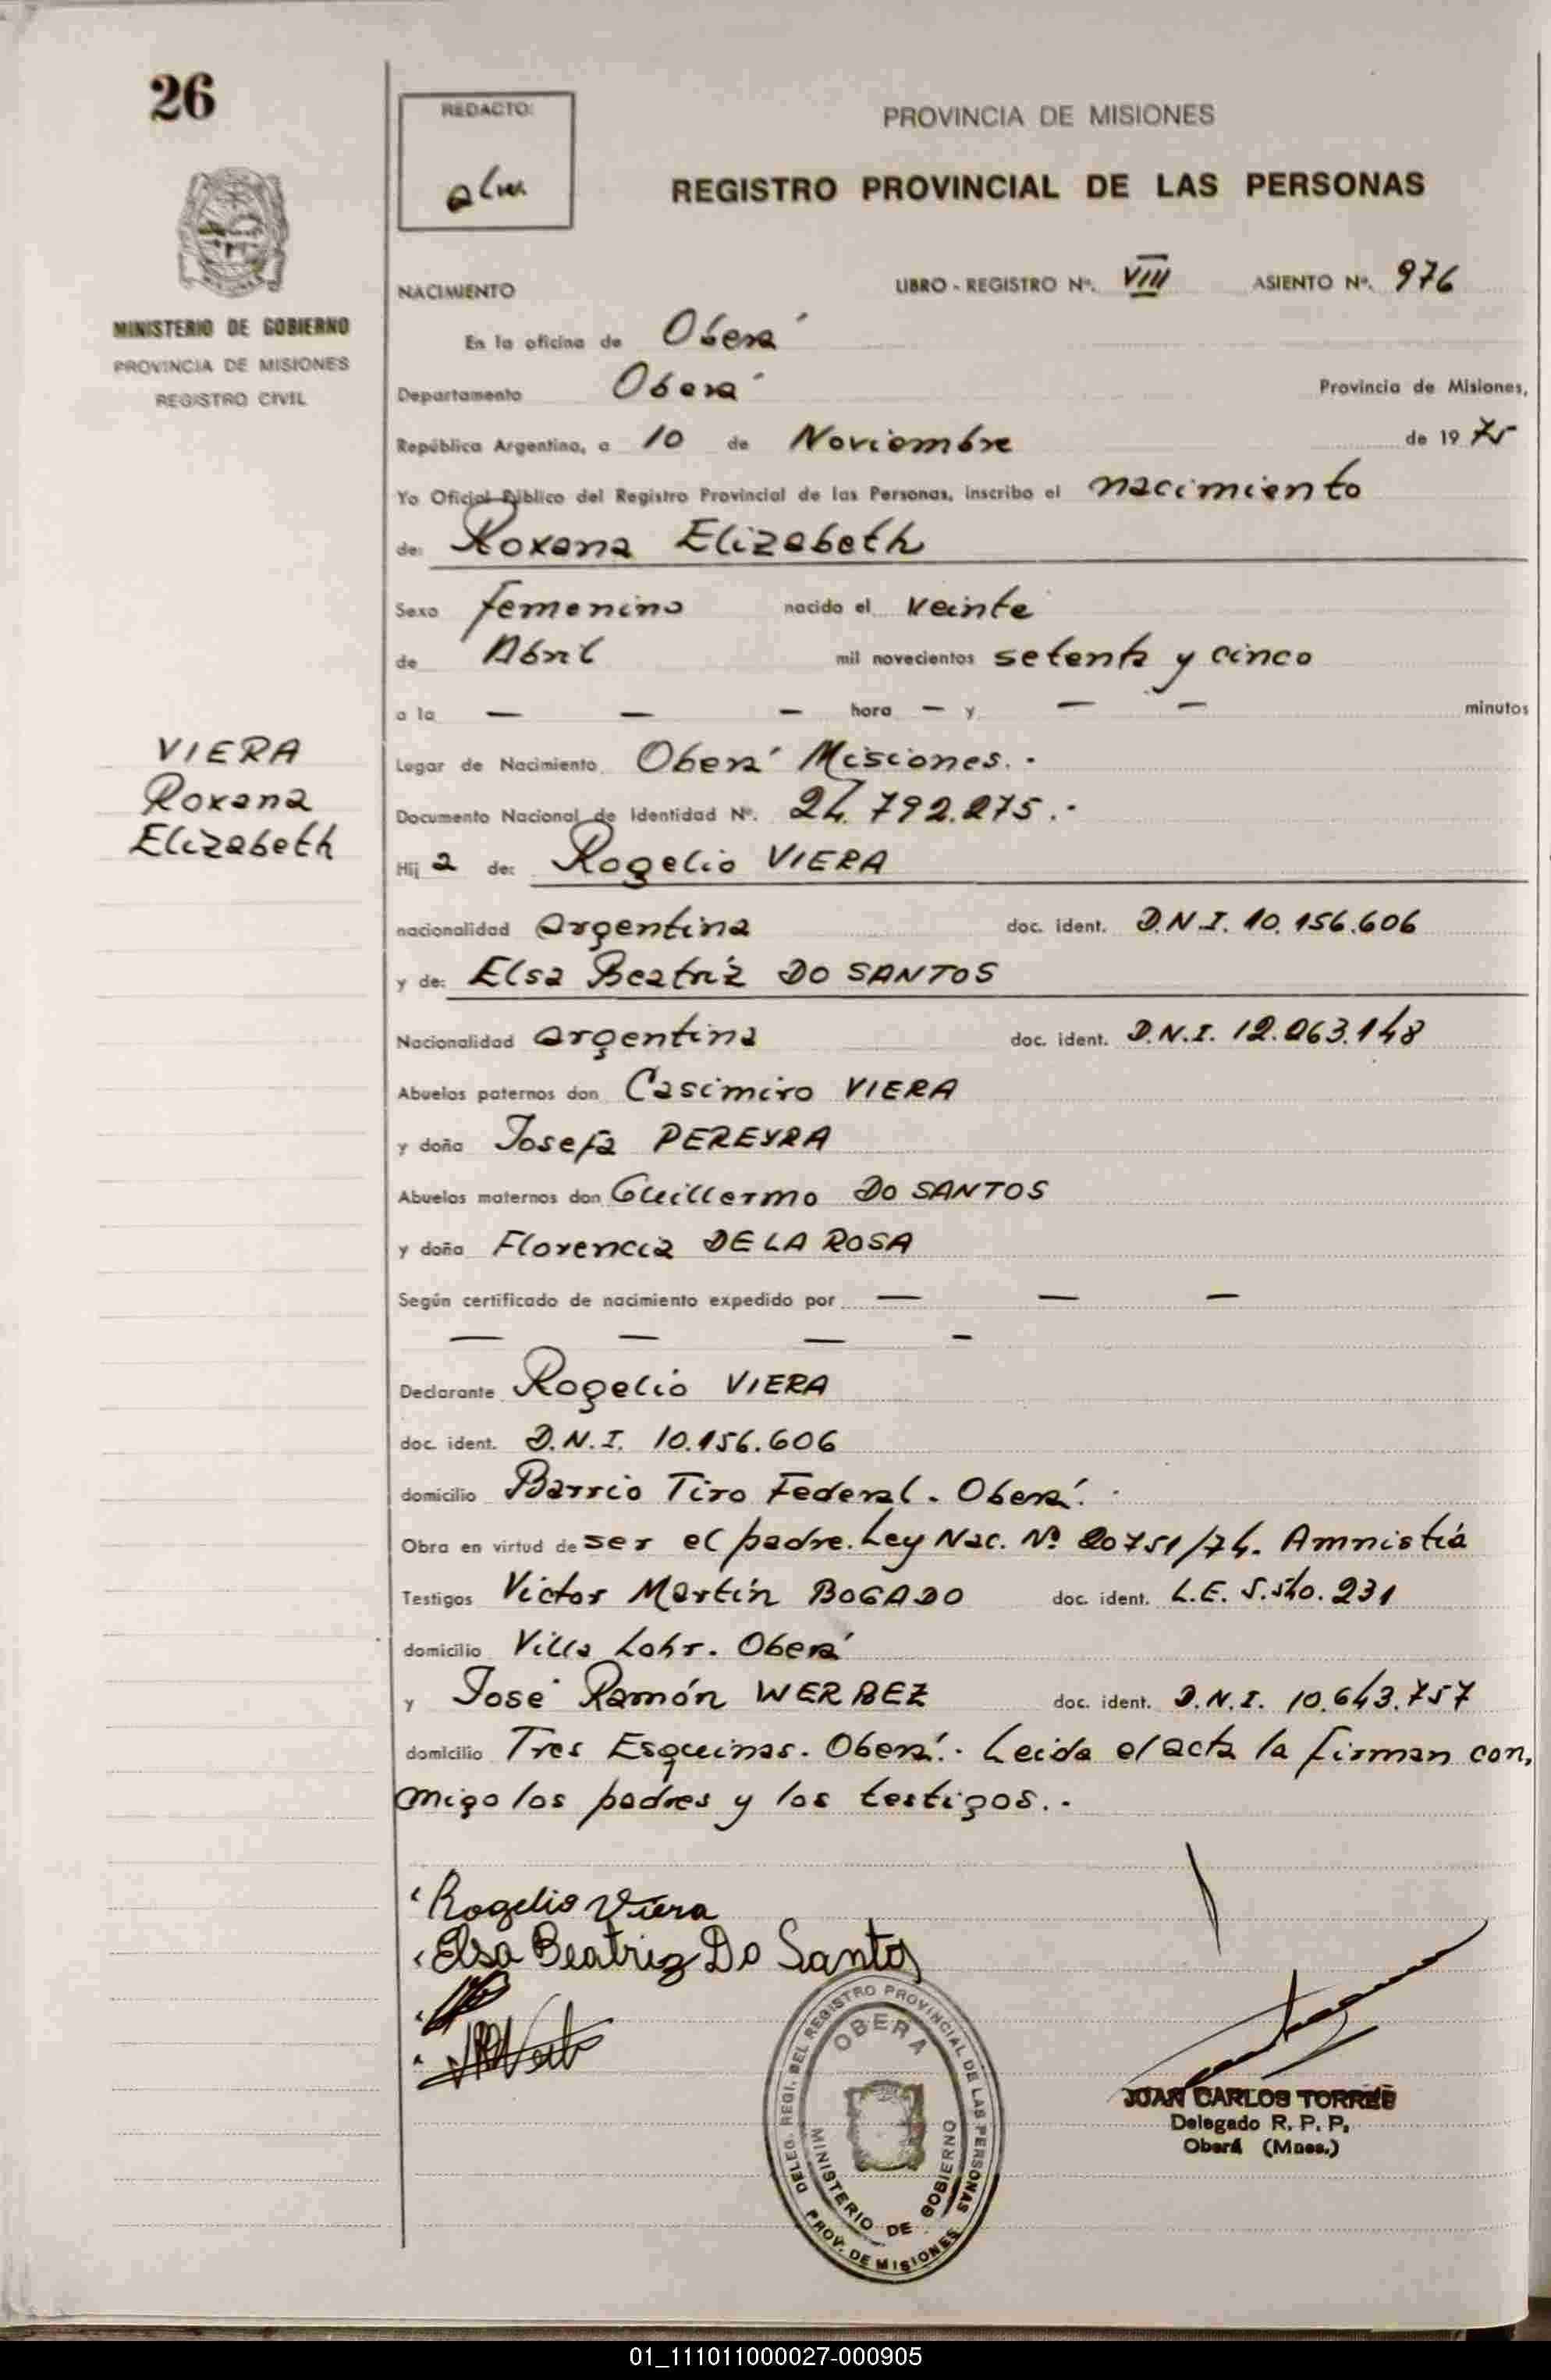 26
REDACTO:
PROVINCIA DE MISIONES
REGISTRO PROVINCIAL DE LAS PERSONAS
MINISTERIO DE GOBIERNO
PROVINCIA DE MISIONES
REGISTRO CIVIL
NACIMIENTO LIBRO - REGISTRO Nº. VIII ASIENTO Nº. 976
En la oficina de Oberá
Departamento Oberá Provincia de Misiones,
República Argentina, a 10 de Noviembre de 1975
Yo Oficial Público del Registro Provincial de las Personas, inscribo el nacimiento
de: Roxana Elizabeth
Sexo femenino nacido el veinte
de Abril mil novecientos setenta y cinco
a la — — — hora — y — — minutos
VIERA
Roxana
Elizabeth
Lugar de Nacimiento Oberá Misiones.-
Documento Nacional de Identidad Nº. 24.792.275.-
Hij a de: Rogelio VIERA
nacionalidad argentina doc. ident. D.N.I. 10.156.606
y de: Elsa Beatriz DO SANTOS
Nacionalidad argentina doc. ident. D.N.I. 12.063.148
Abuelos paternos don Casimiro VIERA
y doña Josefa PEREYRA
Abuelos maternos don Guillermo DO SANTOS
y doña Florencia DE LA ROSA
Según certificado de nacimiento expedido por — — —
— — — -
Declarante Rogelio VIERA
doc. ident. D.N.I. 10.156.606
domicilio Barrio Tiro Federal. Oberá.-
Obra en virtud de ser el padre. Ley Nac. Nº 20751/74. Amnistía
Testigos Victor Martín BOGADO doc. ident. L.E. 5.540.231
domicilio Villa Lohr. Oberá
y José Ramón WERBEZ doc. ident. D.N.I. 10.643.757
domicilio Tres Esquinas. Oberá.- Leida el acta la firman con,
migo los padres y los testigos.-
Rogelio Viera
Elsa Beatriz Do Santos
DELEG. REGI. DEL REGISTRO PROVINCIAL DE LAS PERSONAS
OBERA
MINISTERIO DE GOBIERNO
PROV. DE MISIONES
JUAN CARLOS TORRES
Delegado R. P. P.
Oberá (Mnes.)
01_111011000027-000905